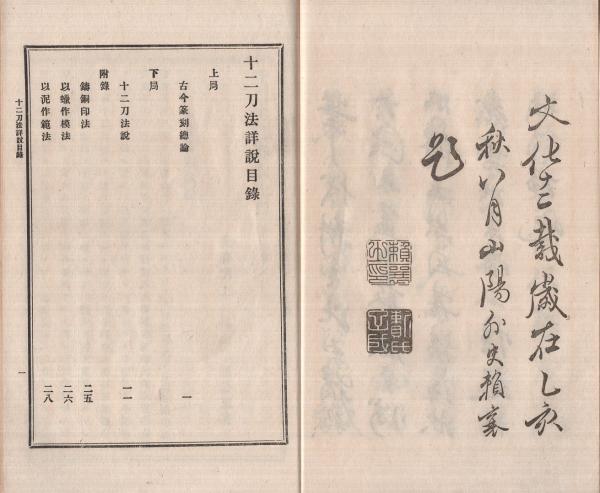 文化十二載歲在乙亥
秋八月山陽外史賴襄
題
賴襄
之印
賴氏
子成
十二刀法詳說目錄
上局
古今篆刻總論 一
下局
十二刀法說 一一
附錄
鑄銅印法 二五
以蠟作模法 二六
以泥作範法 二八
十二刀法詳說目錄 一